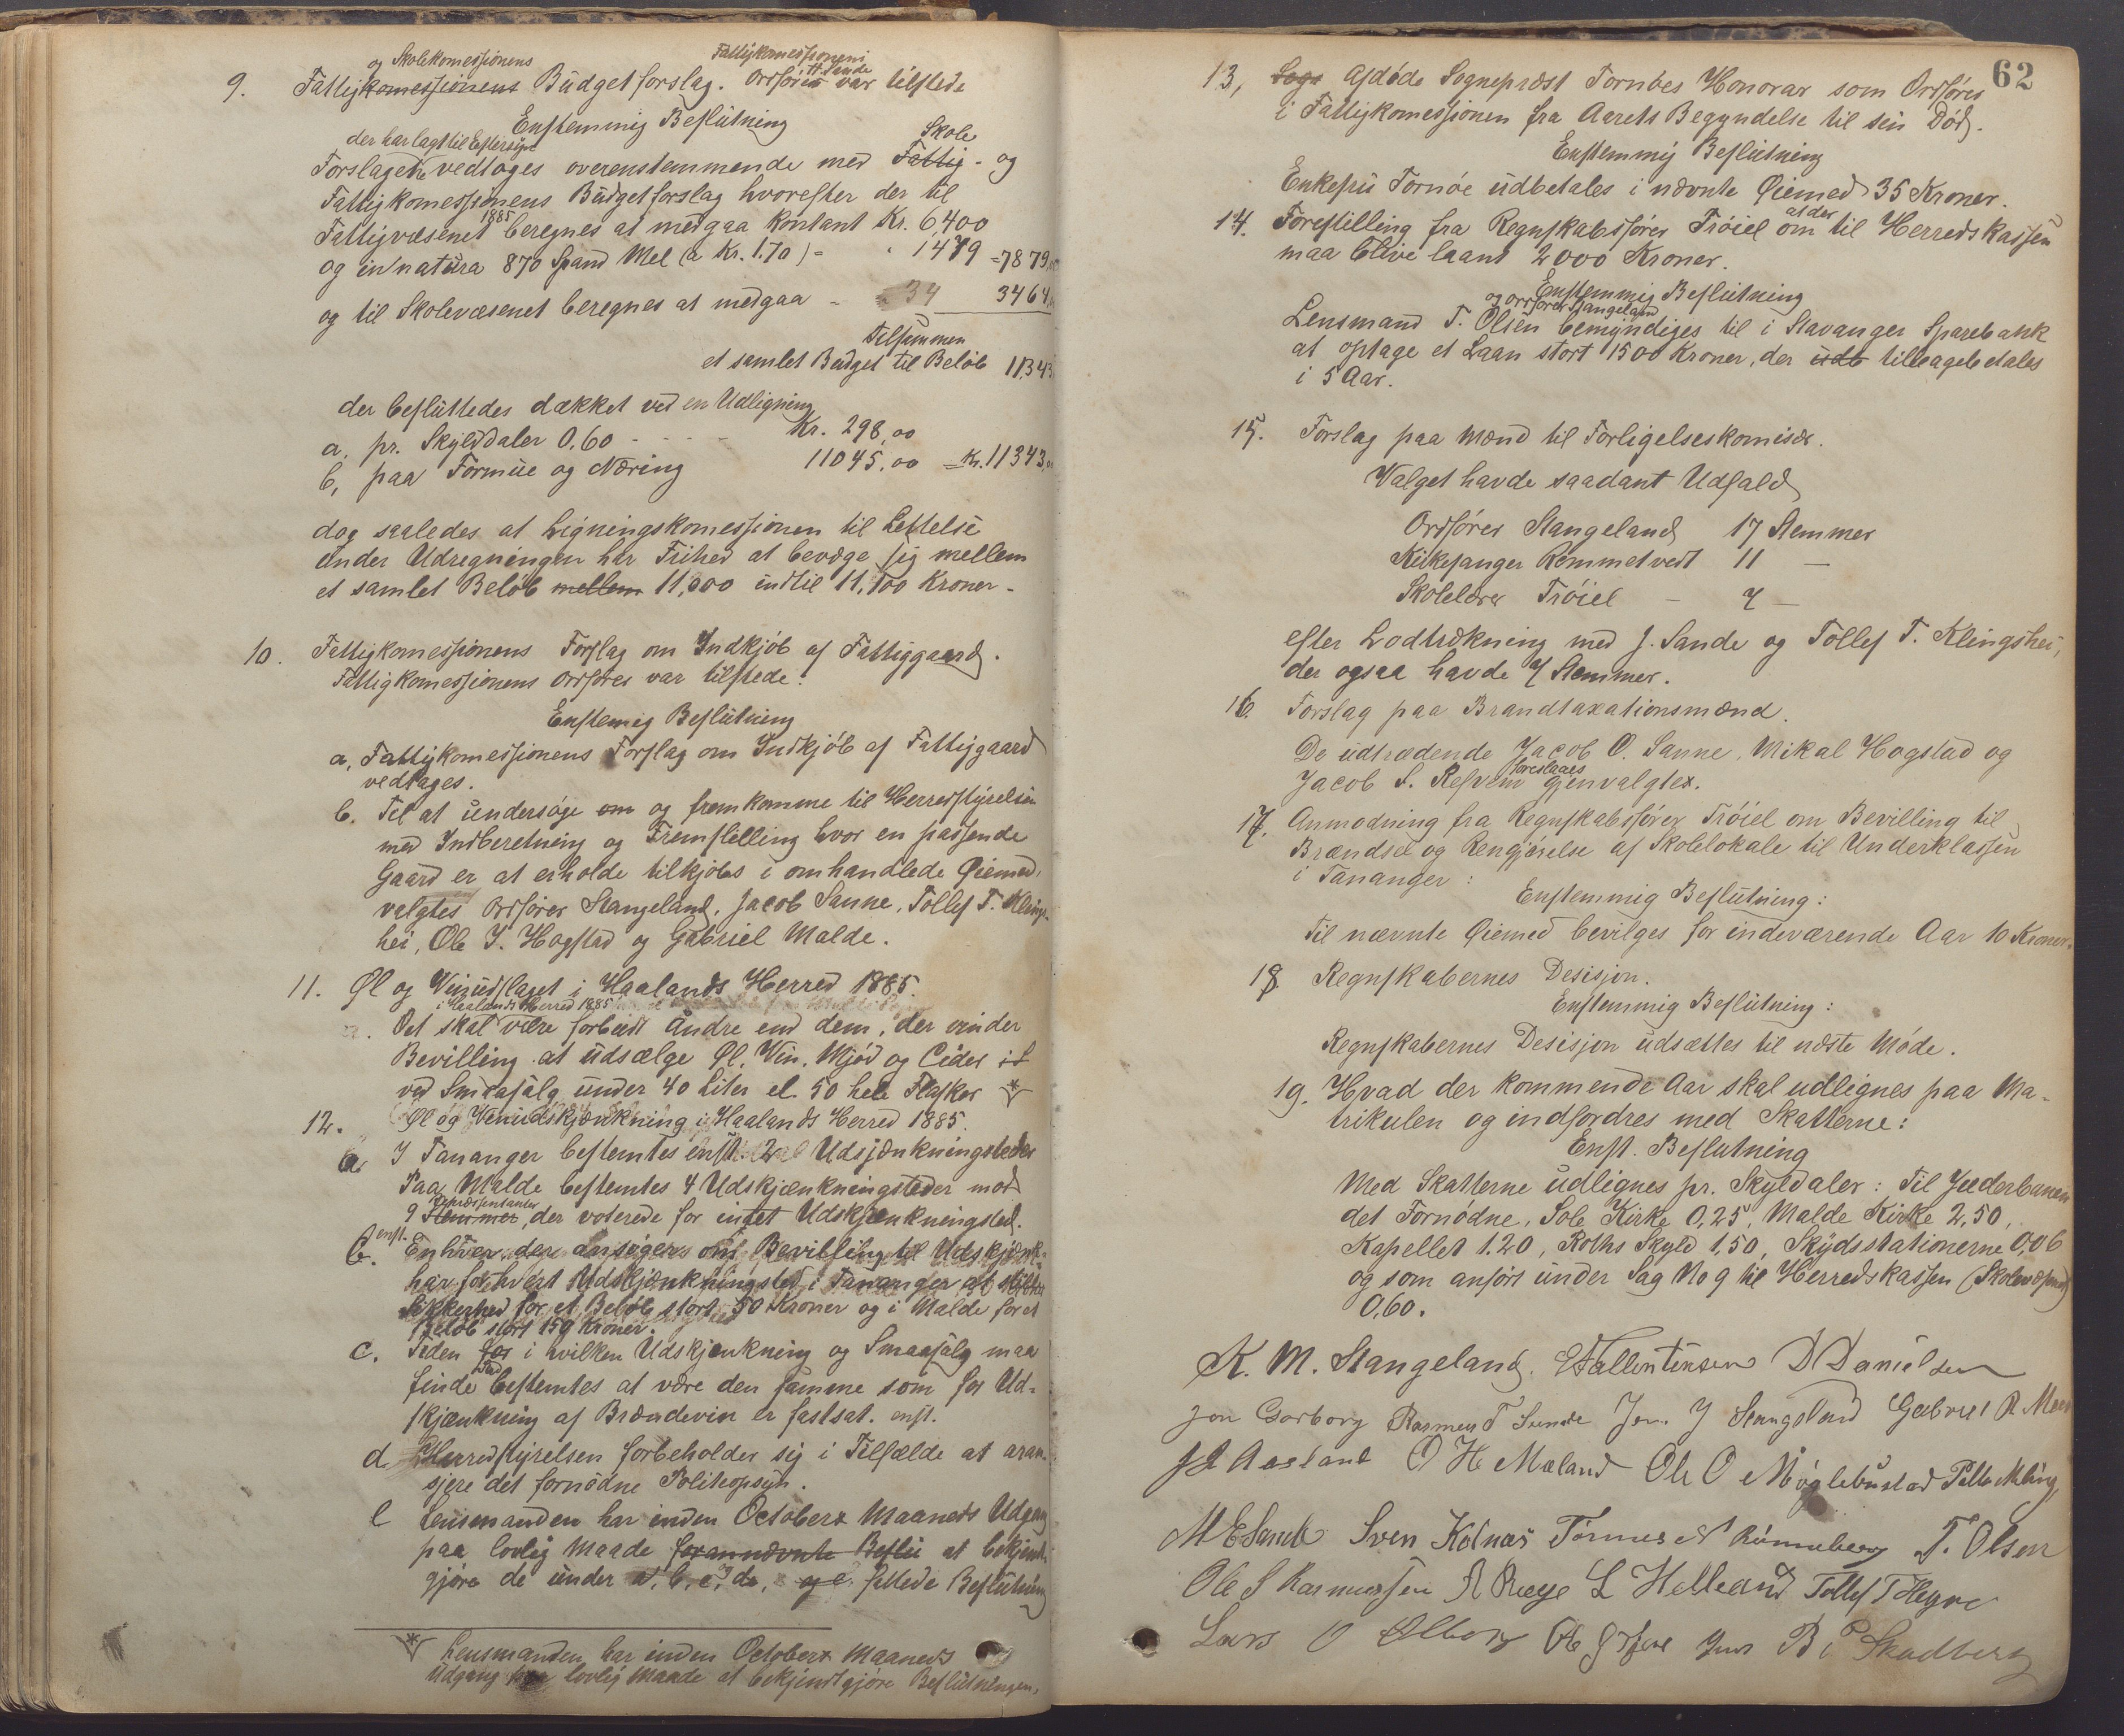 og Skolekomessionens
Fattigkomessionens
9. Fattigkomessionens Büdgetforslag. Ordförer H. Sande var tilstede
Enstemmig Beslütning
der har lagt til Eftersyn
Skole
Forslagene vedtages overenstemmende med Fattig- og
Fattigkomessionens Büdgetforslag hvorefter der til
Fattigvæsenet 1885 beregnes at medgaa kontant Kr. 6,400
og in natura 870 Spand Mel (a Kr. 1.70) = " 1479 = 7879,00
og til Skolevæsenet beregnes at medgaa - 34 3464,
Tilsammen
et samlet Budget til Beløb 11,343
der beslüttedes dækket ved en Udligning
a. pr. Skylddaler 0,60 - - - - Kr. 298,00
b, paa Formüe og Næring 11045,00 = Kr. 11343,00
dog saaledes at Ligningskomessionen til Lettelse
ünder Udregningen har Frihed at bevæge sig mellem
et samlet Beløb mellem 11,000 indtil 11,100 Kroner.
10. Fattigkomessionens Forslag om Indkjöb af Fattiggaard.
Fattigkomessionens Ordförer var tilstede.
Enstemig Beslütning
a, Fattigkomessionens Forslag om Indkjöb af Fattiggaard
vedtages.
b. Til at ündersöge om og fremkomme til Herredstyrelsen
med Indberetning og Fremstilling hvor en passende
Gaard er at erholde tilkjöbs i omhandlede Øiemed,
valgtes Ordförer Stangeland, Jacob Sanne, Tollef T. Klings-
hei, Ole J. Hogstad og Gabriel Malde.
11. Øl og Vinüdslaget i Haalands Herred 1885.
i Haalands Herred 1885
a. Det skal være forbudt Andre end dem, der vinder
Bevilling at üdsælge Øl, Vin, Mjöd og Cider
ved Smaasalg ünder 40 Liter el. 50 hele Flasker *
12. Øl og Vinüdskjænkning i Haalands Herred 1885.
a. I Tananger bestemtes enst. 2 Udsjænkningsteder
Paa Malde bestemtes 4 Udskjænkningsteder mod
9 Stemmer Repræsentanter, der voterede for intet Udskjænkningsted.
b. enst. Enhver der ansøger om Bevilling til Udskjænk-
har for hvert Udskjænkningsted i Tananger at stille
Sikkerhed for et Beløb stort 50 Kroner og i Malde for et
Beløb stort 150 Kroner.
c. Tiden for i hvilken Udskjænkning og Smaasalg maa
finde Sted bestemtes at være den samme som for Ud-
skjænkning af Brændevin er fastsat. enst.
d. Herredstyrelsen forbeholder sig i Tilfælde at aran-
sjere det fornödne Politiopsyn.
e Lensmanden har inden Octobers Maaneds Udgang
paa lovlig Maade forannævnte Beslü at bekjendt-
gjöre de ünder a, b, c, og d, og e. fattede Beslütning
* Lensmanden har inden Octobers Maaneds
Udgang paa lovlig Maade at bekjendtgjöre Beslütningen.
62
13, Sogn Afdöde Sognepræst Tornöes Honorar som Ordförer
i Fattigkomessionen fra Aarets Begyndelse til sin Död.
Enstemmig Beslütning
Enkefru Tornöe üdbetales i nævnte Øiemed 35 Kroner.
14. Forestilling fra Regnskabsförer Tröiel om at der til Herredskassen
maa blive laant 2000 Kroner.
Enstemmig Beslütning
og ordförer Stangeland
Lensmand T. Olsen bemyndiges til i Stavanger Sparebank
at optage et Laan stort 1500 Kroner, der üdb tilbagebetales
i 5 Aar.
15. Forslag paa Mænd til Forligelseskomisær.
Valget havde saadant Udfald
Ordförer Stangeland 17 Stemmer
Kirkesanger Rommetvedt 11 —
Skolelærer Tröiel — 7 —
efter Lodtrækning med J. Sande og Tollef T. Klingshei,
der ogsaa havde 7 Stemmer.
16. Forslag paa Brandtaxationsmænd.
De üdtrædende Jacob O. Sanne, Mikal Hogstad og
Jacob S. Refvem foreslaaes gjenvalgtex.
17. Anmodning fra Regnskabsförer Tröiel om Bevilling til
Brændsel og Rengjörelse af Skolelokale til Underklassen
i Tananger:
Enstemmig Beslütning:
Til nævnte Øiemed bevilges for indeværende Aar 10 Kroner.
18 Regnskabernes Desisjon.
Enstemmig Beslütning:
Regnskabernes Desisjon üdsættes til næste Möde.
19. Hvad der kommende Aar skal udlignes paa Ma-
trikulen og indfordres med Skatterne:
Enst. Beslutning
Med Skatterne üdlignes pr. Skylddaler: Til Jæderbanen
det Fornödne, Sole Kirke 0,25, Malde Kirke 2,50,
Kapellet 1.20, Roths Skyld 1,50, Skydsstationerne 0,06
og som anfört ünder Sag No 9 til Herredskassen (Skolevæsenet)
0,60.
K. M. Stangeland. E Fallentinsen D Danielsen
Jon Gorborg Rasmus T Sunde Jon. J Stangeland Gabriel R.
J J Aasland O H Mæland Ole O Möglebustad Pelle Meling
M E Sande Sven Kolnæs Tönnes N Rünneberg T. Olsen
Ole S Rasmussen A Rege L Helleland Tollef T Hegre
Lars O Ølberg Ole G B P Skadberg